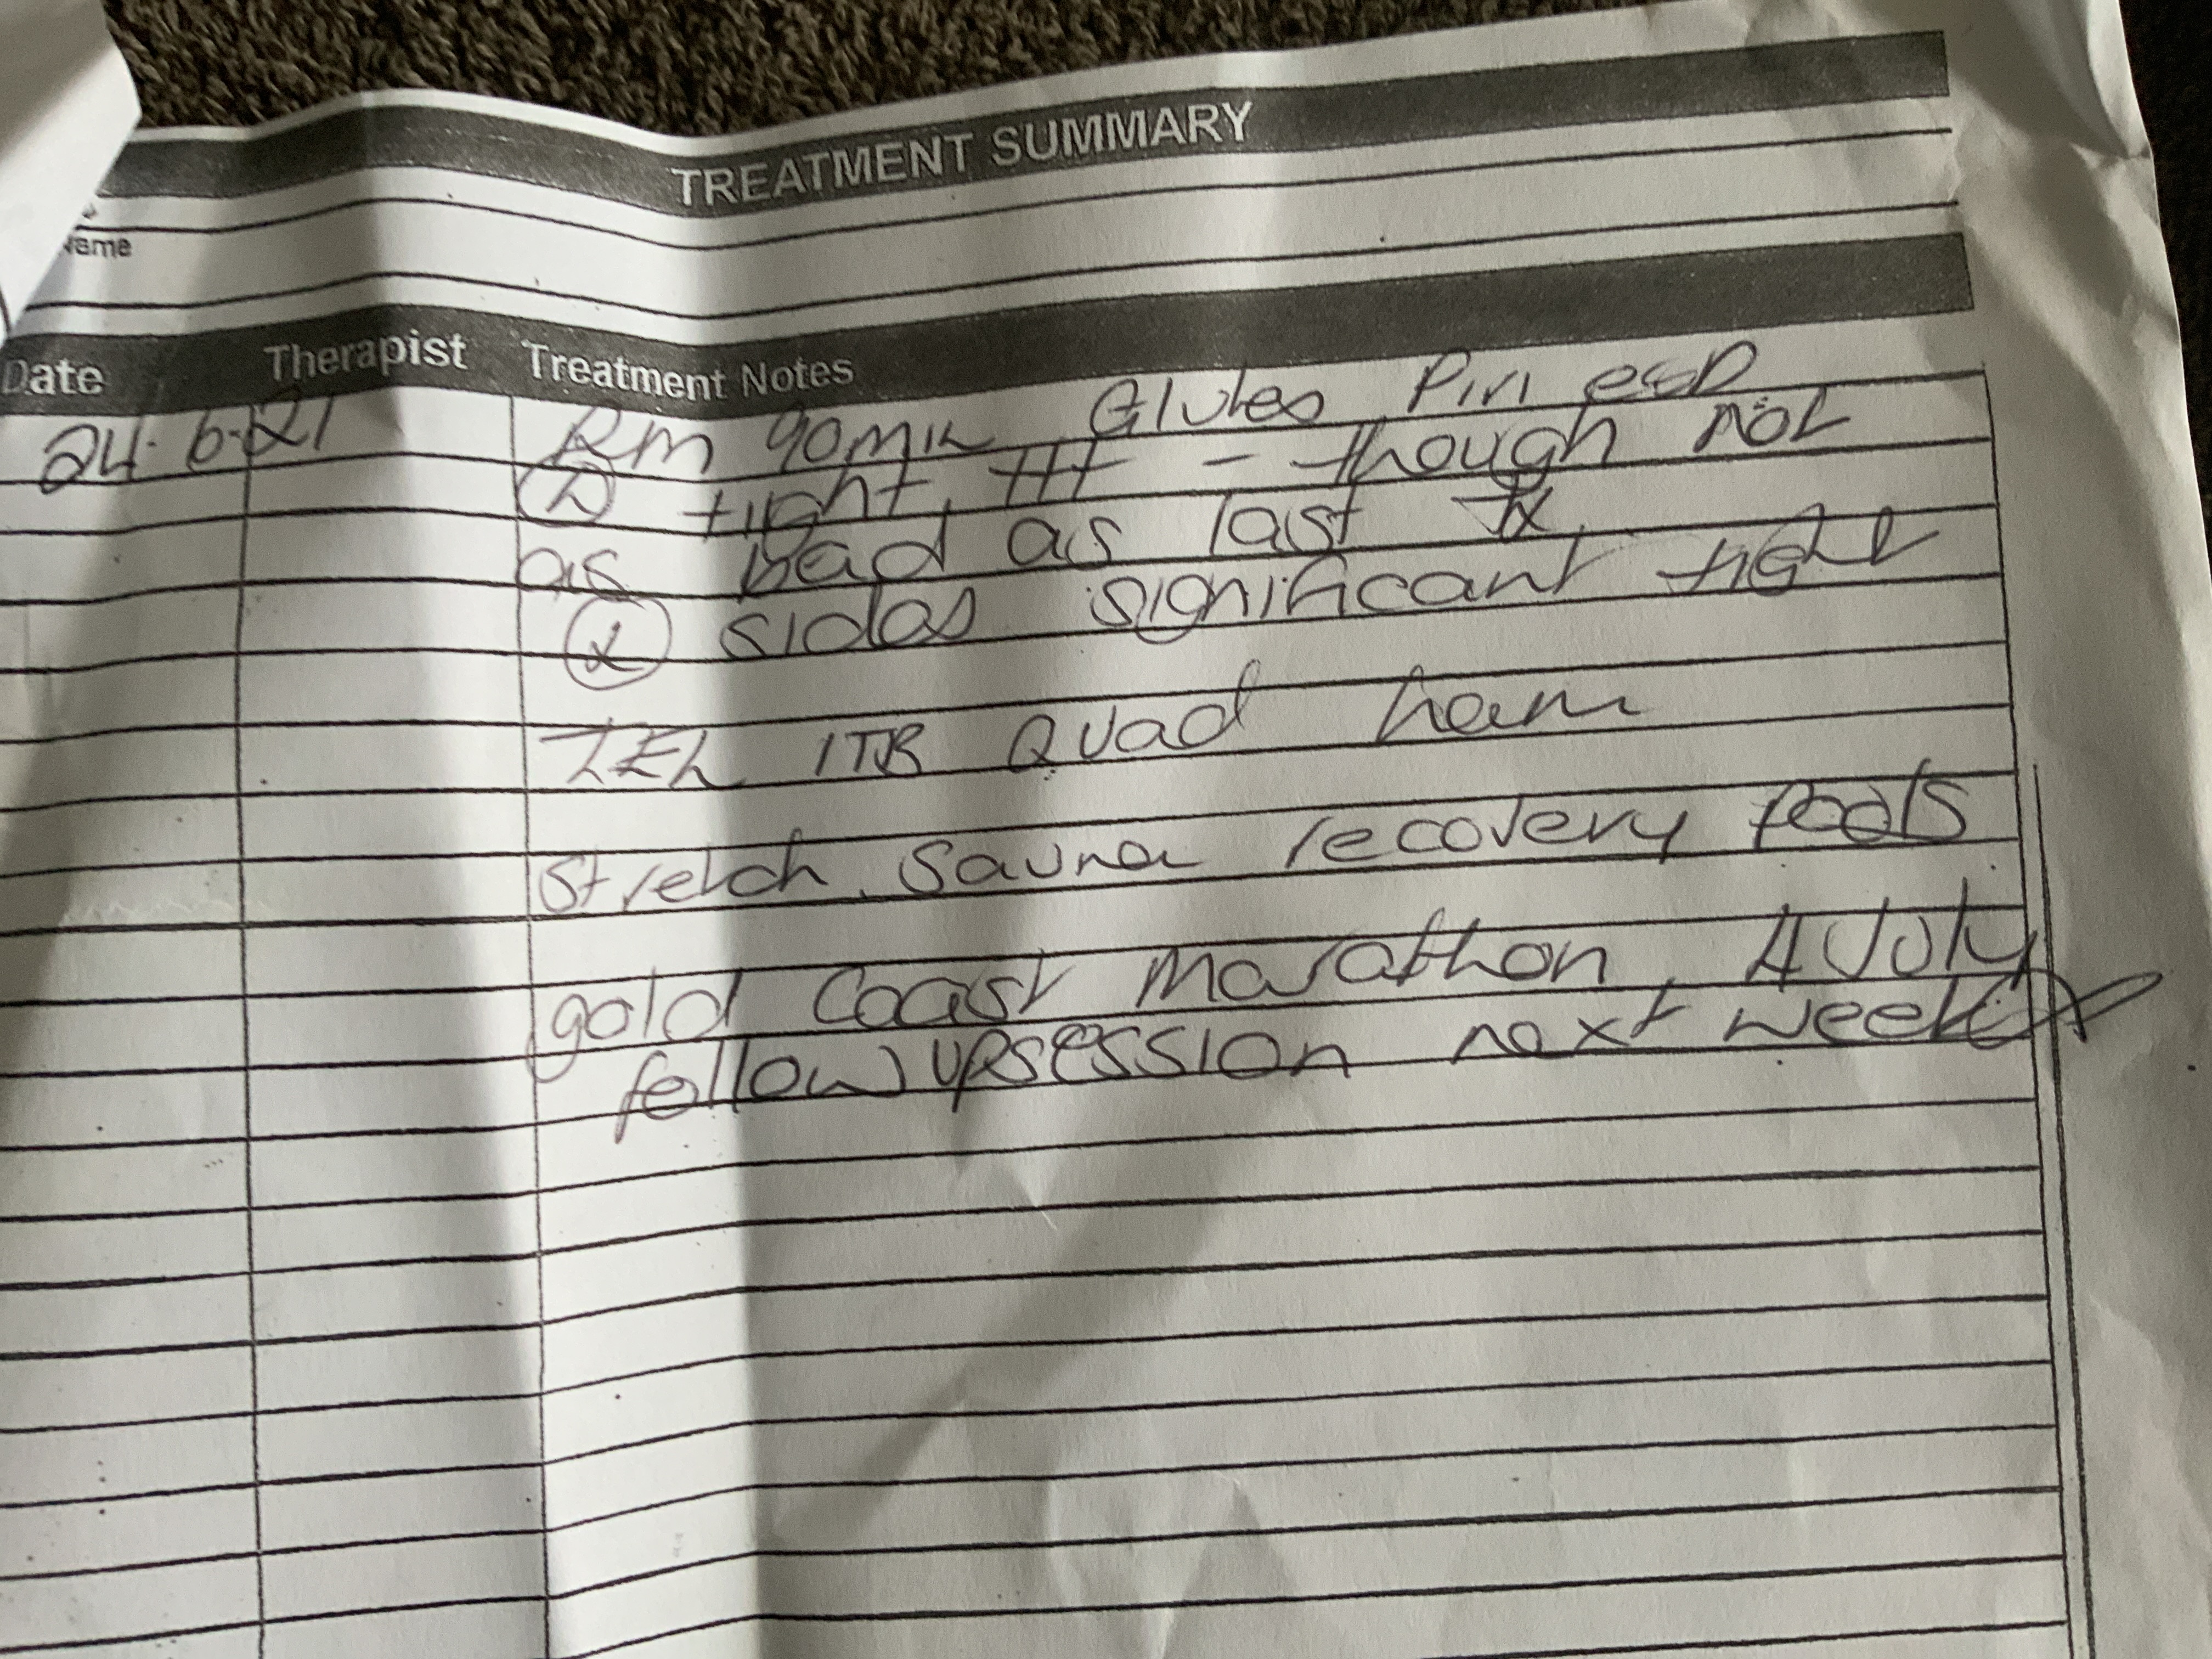 TREATMENT SUMMARY
Name
Date Therapist Treatment Notes
24.6.21 RM 90min Glutes Piri esp
tight, +++ - though not
as bad as last tx
sides significant tight
ITB Quad ham
Stretch. Sauna recovery pools
gold Coast Marathon, 4 July
follow up session next week